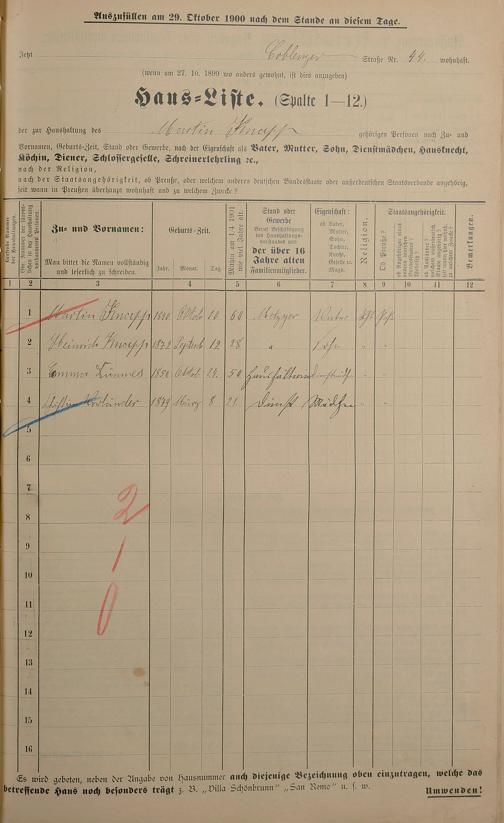 Auszufüllen am 29. Oktober 1900 nach dem Stande an diesem Tage.
Jetzt Coblenzer Straße Nr. 44. wohnhaft.
(wenn am 27. 10. 1899 wo anders gewohnt, ist dies anzugeben)
Haus=Liste. (Spalte 1—12.)
der zur Haushaltung des Martin Knapp gehörigen Personen nach Zu- und
Vornamen, Geburts-Zeit, Stand oder Gewerbe, nach der Eigenschaft als Vater, Mutter, Sohn, Dienstmädchen, Hausknecht,
Köchin, Diener, Schlossergeselle, Schreinerlehrling ꝛc.,
nach der Religion,
nach der Staatsangehörigkeit, ob Preuße, oder welchem anderen deutschen Bundesstaate oder außerdeutschen Staatsverbande angehörig,
seit wann in Preußen überhaupt wohnhaft und zu welchem Zwecke?
Zu- und Vornamen:
Man bittet die Namen vollständig und leserlich zu schreiben.
Geburts-Zeit.
Jahr. Monat. Tag.
Mithin am 1/4 1901 wie viel Jahre alt.
Stand oder Gewerbe
der über 16 Jahre alten Familienmitglieder.
Eigenschaft:
ob Vater, Mutter, Sohn, Tochter, Knecht, Geselle u. Magd.
Religion.
Staatsangehörigkeit.
Ob Preuße?
Bemerkungen.
1 2 3 4 5 6 7 8 9 10 11 12
1 Martin Knapp 1840 Oktob 10 60 Metzger Vater
2 Heinrich Knapp 1872 Septemb 12 28 " Sohn
3 Emma 1850 Oktob. 29. 50
4 1879 März 8 21. Dienst Mädchen
5
6
7
8
9
10
11
12
13
14
15
16
2
1
0
Es wird gebeten, neben der Angabe von Hausnummer auch diejenige Bezeichnung oben einzutragen, welche das
betreffende Haus noch besonders trägt z. B. „Villa Schönbrunn" „San Remo" u. s. w. Umwenden!